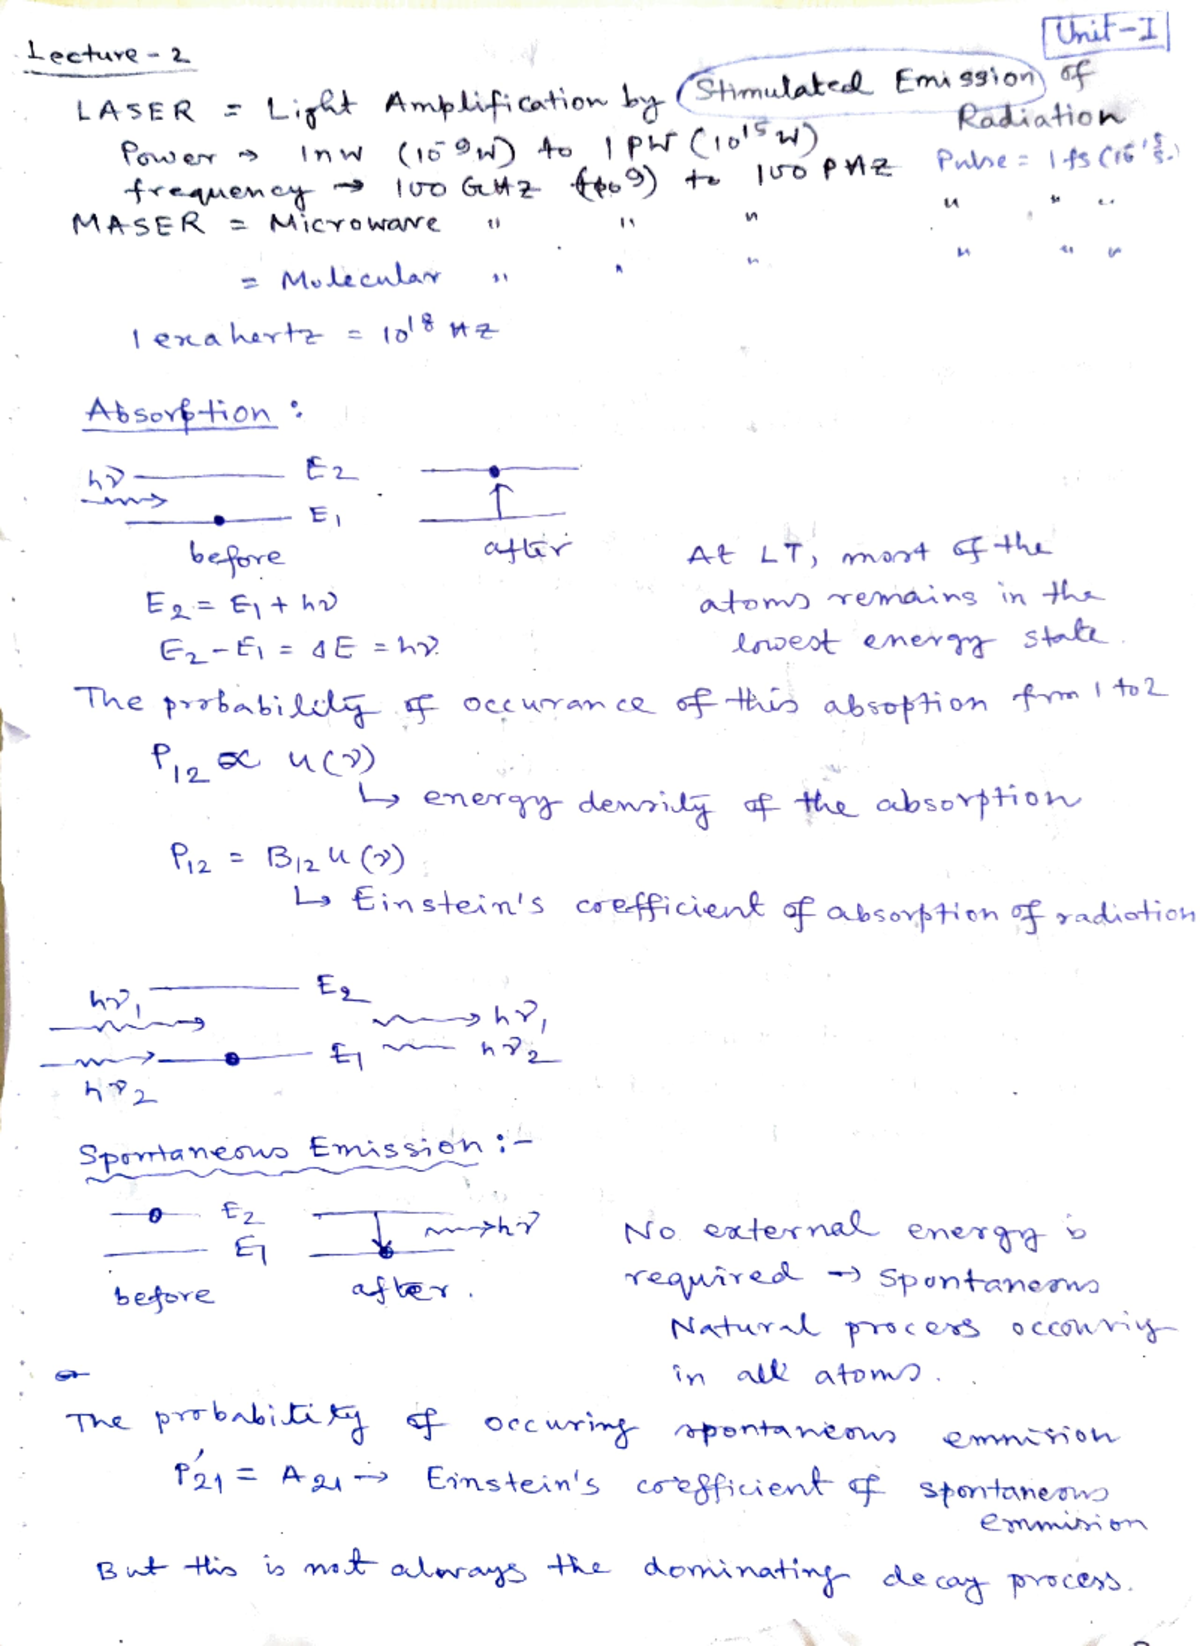 Unit-I
Lecture - 2
LASER = Light Amplification by Stimulated Emission of Radiation
Power → 1nW (10⁻⁹W) to 1PW (10¹⁵W)
Pulse = 1fs (10⁻¹⁵ s.)
frequency → 100 GHz (10⁹) to 100 PHz
MASER = Microwave " " " " " "
= Molecular " " " " " "
1 exahertz = 10¹⁸ HZ
Absorption :
hν E2
E1
before after
At LT, most of the
atoms remains in the
lowest energy state.
E2 = E1 + hν
E2 - E1 = ΔE = hν.
The probability of occurrance of this absoption from 1 to 2
P12 ∝ u(ν)
↳ energy density of the absorption
P12 = B12 u(ν)
↳ Einstein's coefficient of absorption of radiation
hν1 E2 hν1
E1 hν2
hν2
Spontaneous Emission :-
E2 hν
E1
before after.
No external energy is
required → spontaneous
Natural process occouring
in all atoms.
The probability of occuring spontaneous emmision
P'21 = A21 → Einstein's coefficient of spontaneous
emmision
But this is not always the dominating decay process.